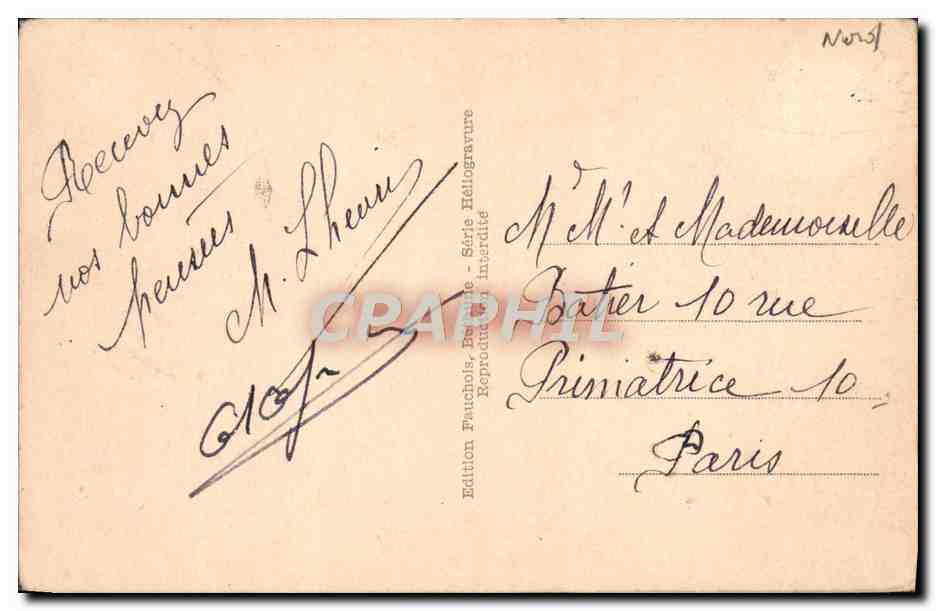 Nord
Recevez
nos bonnes
pensées
M. Lheur
Edition Fauchois, Béthune - Série Héliogravure
Reproduction interdite
CPAPHIL
M. Mᵉ et Mademoiselle
Batier 10 rue
Primatrice 10
Paris